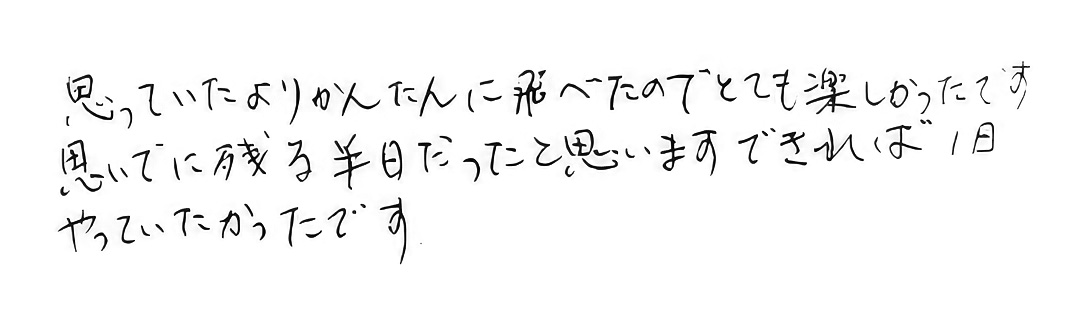 思っていたよりかんたんに飛べたのでとても楽しかったです
思いでに残る半日だったと思いますできれば1日
やっていたかったです